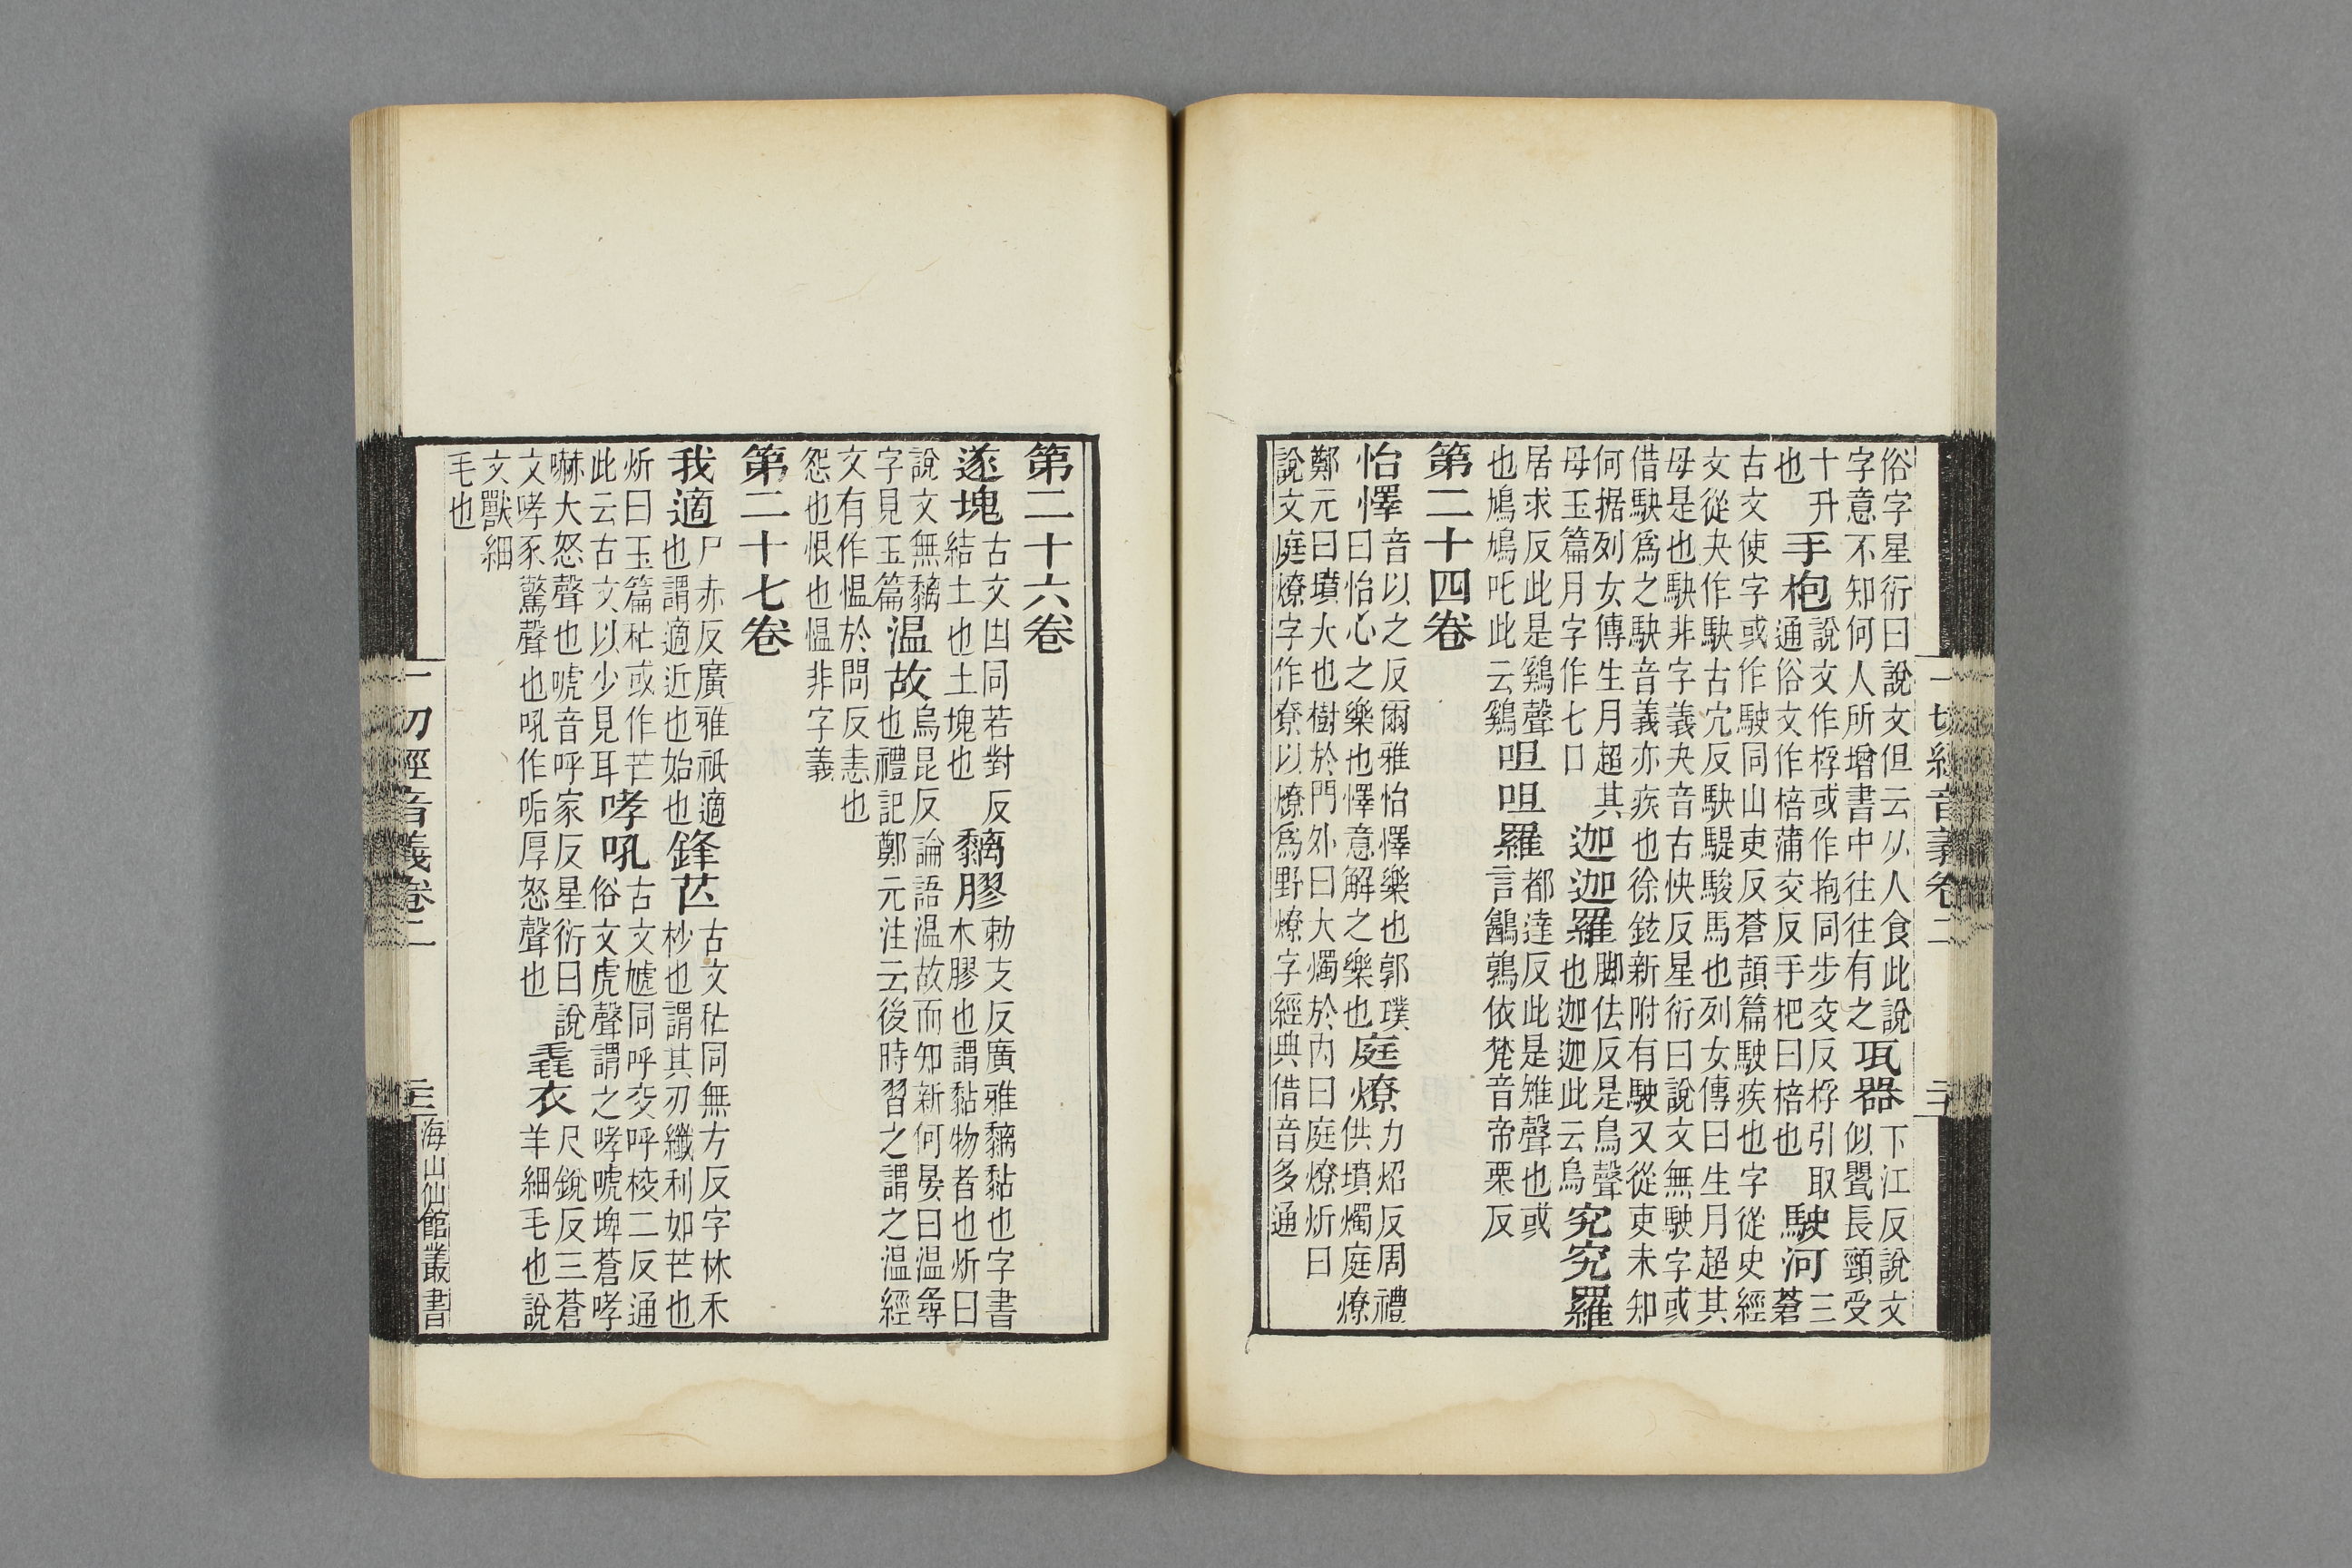 俗字星衍曰說文但云从人食此說
字意不知何人所增書中往往有之瓨器下江反說文
似甖長頸受
十升
也手枹說文作桴或作抱同步交反桴引取
通俗文作棓蒲交反手杷曰棓也駛河三
蒼
古文使字或作駛同山吏反蒼頡篇駛疾也字從史經
文從夬作駃古穴反駃騠駿馬也列女傳曰生月超其
母是也駃非字義夬音古快反星衍曰說文無駛字或
借駃爲之駃音義亦疾也徐鉉新附有駛又從吏未知
何据列女傳生月超其
母玉篇月字作七日迦迦羅脚佉反是鳥聲
也迦迦此云烏究究羅
居求反此是鷄聲
也鳩鳩吒此云鷄呾呾羅都達反此是雉聲也或
言鷭鶉依梵音帝栗反
第二十四卷
怡懌音以之反爾雅怡懌樂也郭璞
曰怡心之樂也懌意解之樂也庭燎力炤反周禮
供墳燭庭燎
鄭元曰墳大也樹於門外曰大燭於內曰庭燎炘曰
說文庭燎字作尞以燎爲野燎字經典借音多通
一切經音義卷二
第二十六卷
遂塊古文凷同若對反
結土也土塊也黐膠勅支反廣雅黐黏也字書
木膠也謂黏物者也炘曰
說文無黐
字見玉篇温故烏昆反論語温故而知新何晏曰温尋
也禮記鄭元注云後時習之謂之温經
文有作愠於問反恚也
怨也恨也愠非字義
第二十七卷
我適尸赤反廣雅祇適
也謂適近也始也鋒芒古文秐同無方反字林禾
杪也謂其刃纖利如芒也
炘曰玉篇秐或作芒
此云古文以少見耳哮吼古文虓同呼交呼校二反通
俗文虎聲謂之哮唬埤蒼哮
嚇大怒聲也唬音呼家反星衍曰說
文哮豕驚聲也吼作呴厚怒聲也毳衣尺銳反三蒼
羊細毛也說
文獸細
毛也
一切經音義卷二
海山仙館叢書